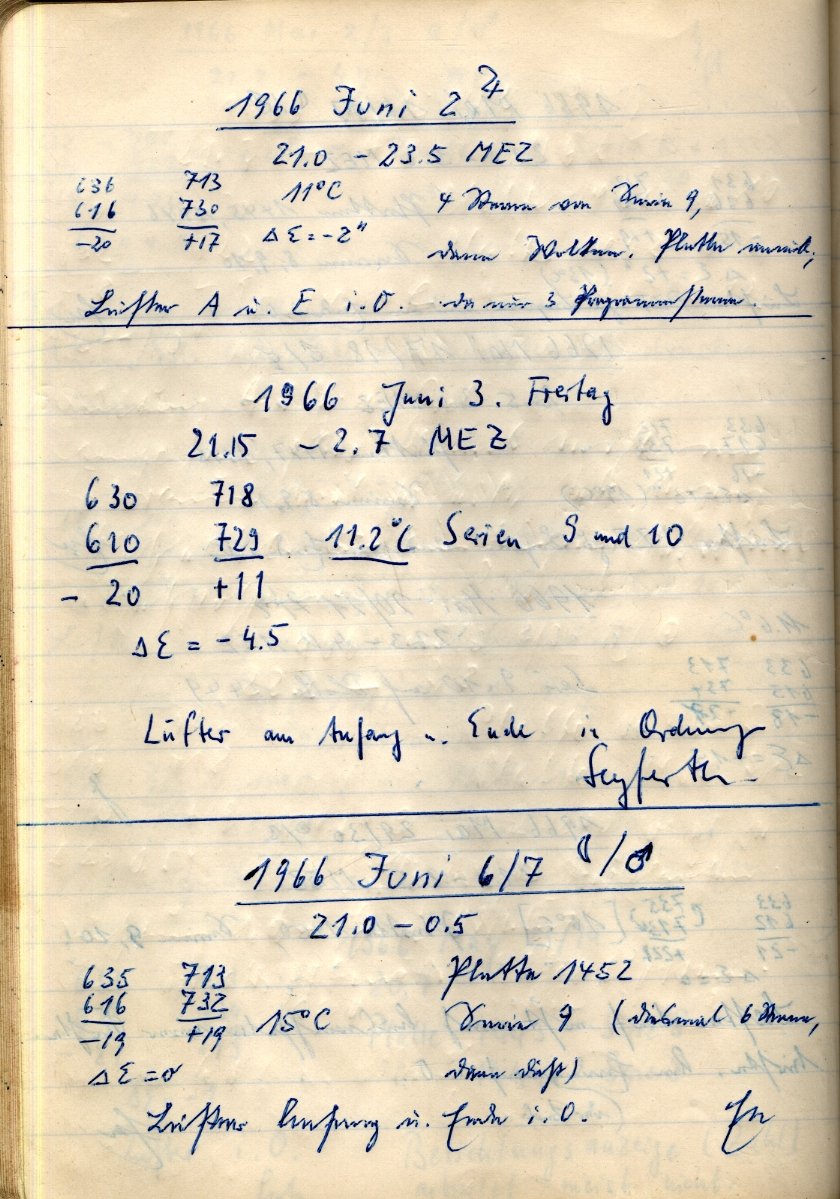 1966 Juni 2 ♃
21.0 – 23.5 MEZ
636 713 11°C 4 Sterne von Serie 9,
616 730
–20 +17 Δ Σ = –2" dann Wolken. Platte zurück,
Lüfter A u. E i. O. da nur 3 Programmsterne
1966 Juni 3. Freitag
21.15 – 2.7 MEZ
630 718
610 729 11.2°C Serien 9 und 10
– 20 +11
Δ Σ = – 4.5
Lüfter am Anfang u. Ende in Ordnung
Seyferth
1966 Juni 6/7 ☾/♂
21.0 – 0.5
635 713 Platte 1452
616 732 15°C Serie 9 (diesmal 6 Sterne,
–19 +19
Δ Σ = 0 dann dicht)
Lüfter Anfang u. Ende i. O.